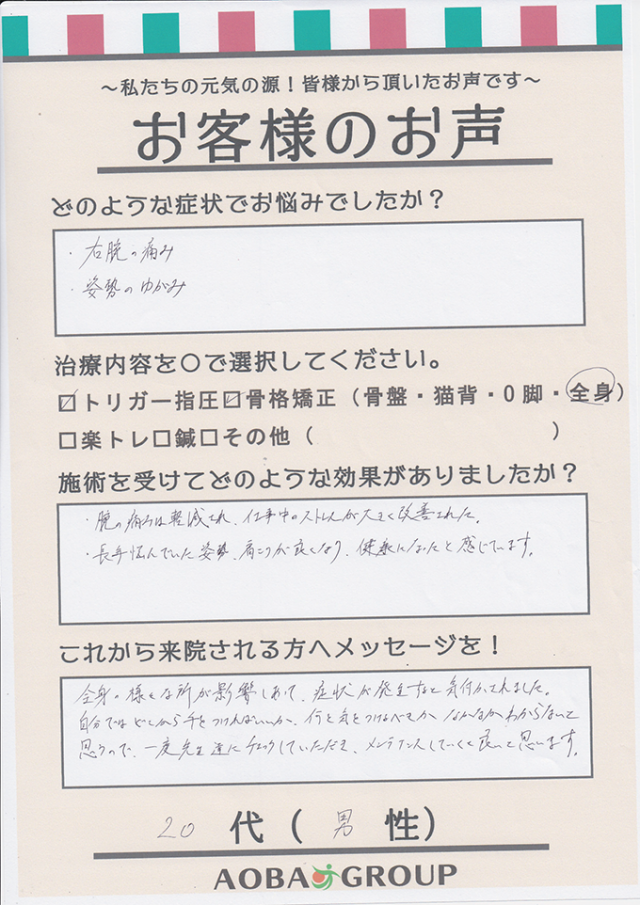 ～私たちの元気の源！皆様から頂いたお声です～
お客様のお声
どのような症状でお悩みでしたか？
・右腕の痛み
・姿勢のゆがみ
治療内容を〇で選択してください。
☑トリガー指圧☑骨格矯正（骨盤・猫背・O脚・全身）
□楽トレ□鍼□その他（　　　）
施術を受けてどのような効果がありましたか？
・腕の痛みは軽減され、仕事中のストレスが大きく改善された。
・長年悩んでいた姿勢、肩こりが良くなり、健康になったと感じています。
これから来院される方へメッセージを！
全身の様々な所が影響しあって、症状が発生すると気付かされました。
自分ではどこから手をつければいいか、何に気をつけるべきかなかなかわからないと
思うので、一度先生達にチェックしていただき、メンテナンスしていくと良いと思います。
20代（男性）
AOBA GROUP